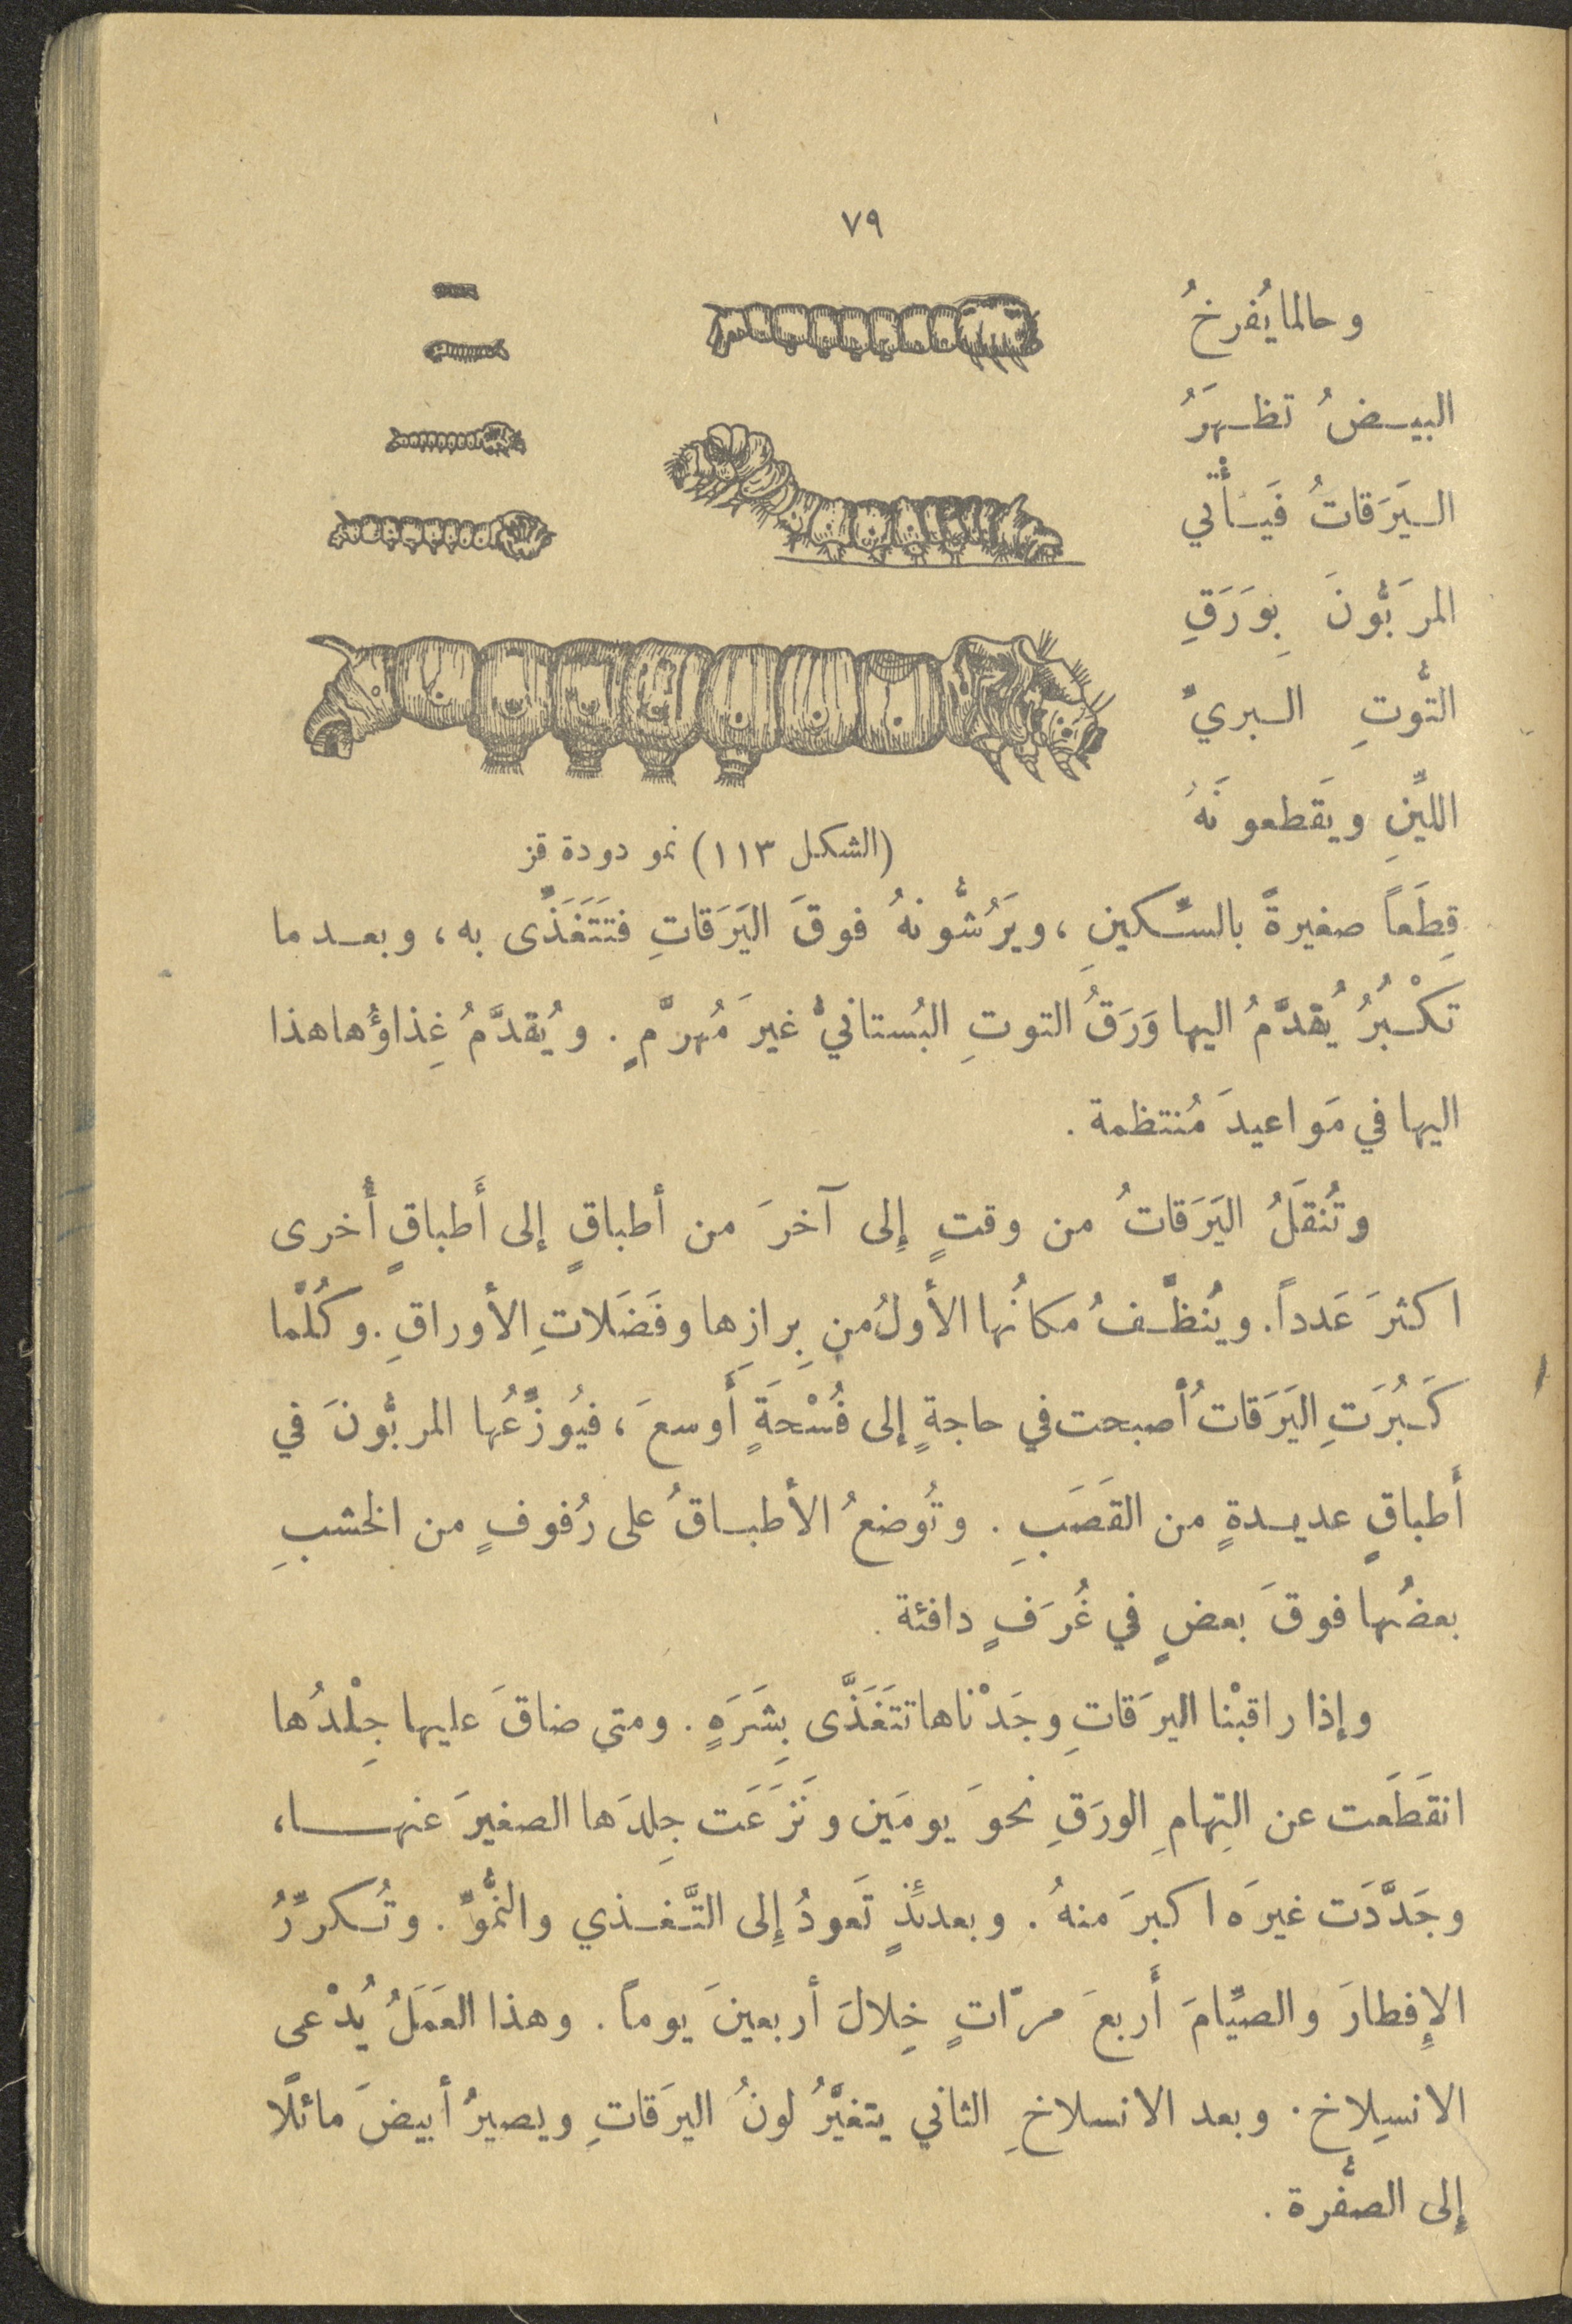 ٧٩
وحالما يُفرخُ
البيـضُ تظـهَرُ
الـيَرَقاتُ فَيـأْتي
المرَبُّونَ بِوَرَقِ
التُّوتِ الـبريِّ
الليِّنِ ويَقطعونَهُ
(الشكل ١١٣) نمو دودة قز
قِطَعاً صغيرةً بالسِّكينِ، ويَرُشُّونهُ فوقَ اليَرَقاتِ فتَتَغَذَّى به، وبعـدما
تَكْـبُرُ يُقدَّمُ اليها وَرَقُ التوتِ البُستانيُّ غيرَ مُهرَّمٍ. ويُقدَّمُ غِذاؤُها هذا
اليها في مَواعيدَ مُنتظمة.
وتُنقَلُ اليَرَقاتُ من وقتٍ إِلى آخرَ من أطباقٍ إلى أَطباقٍ أُخرى
اكثرَ عَدداً. ويُنظَّـفُ مكانُها الأولُ من بِرازِها وفَضَلاتِ الأوراقِ. وكُلَّما
كَـبُرَتِ اليَرَقاتُ أصبحت في حاجةٍ إلى فُسْحَةٍ أَوسعَ، فيُوزِّعُها المربُّونَ في
أَطباقٍ عديـدةٍ من القَصَبِ. وتُوضعُ الأطبـاقُ على رُفوفٍ من الخشبِ
بعضُها فوقَ بعضٍ في غُرَفٍ دافئة.
وإذا راقبْنا اليرَقاتِ وجَدْناها تتَغَذَّى بِشَرَهٍ. ومتى ضاقَ عليها جِلْدُها
انقَطَعت عن التِهامِ الورَقِ نحوَ يومَين ونَزَعَت جِلدَها الصغيرَ عنهـا،
وجَدَّدَت غيرَه اكبرَ منهُ. وبعدئذٍ تَعودُ إِلى التَّـغـذي والنُّموِّ. وتُـكرِّرُ
الإِفطارَ والصيِّامَ أَربعَ مرّاتٍ خِلالَ أربعينَ يوماً. وهذا العَمَلُ يُدْعى
الانسِلاخ. وبعد الانسلاخِ الثاني يتغيَّرُ لونُ اليرَقاتِ ويصيرُ أبيضَ مائلًا
إلى الصُّفرة.